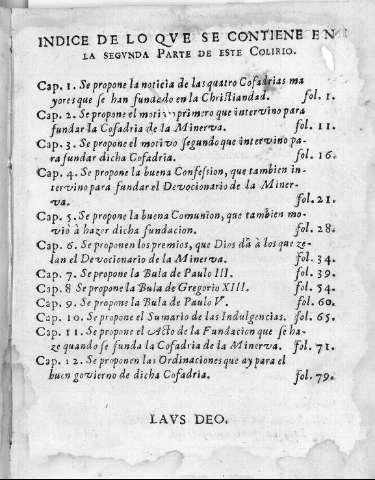 INDICE DE LO QVE SE CONTIENE EN
LA SEGVNDA PARTE DE ESTE COLIRIO.
Cap. 1. Se propone la noticia de las quatro Cofadrias ma
yores que se han fundado en la Christiandad. fol. 1.
Cap. 2. Se propone el motivo primero que intervino para
fundar la Cofadria de la Minerva. fol. 11.
Cap. 3. Se propone el motivo segundo que intervino pa-
ra fundar dicha Cofadria. fol. 16.
Cap. 4. Se propone la buena Confession, que tambien in-
tervino para fundar el Devocionario de la Miner-
va. fol. 21.
Cap. 5. Se propone la buena Comunion, que tambien mo-
viò à hazer dicha fundacion. fol. 28.
Cap. 6. Se proponen los premios, que Dios dà à los que ze-
lan el Devocionario de la Minerva. fol. 34.
Cap. 7. Se propone la Bula de Paulo III. fol. 39.
Cap. 8 Se propone la Bula de Gregorio XIII. fol. 54.
Cap. 9. Se propone la Bula de Paulo V. fol. 60.
Cap. 10. Se propone el Sumario de las Indulgencias. fol. 65.
Cap. 11. Se propone el Acto de la Fundacion que se ha-
ze quando se funda la Cofadria de la Minerva. fol. 71.
Cap. 12. Se proponen las Ordinaciones que ay para el
buen govierno de dicha Cofadria. fol. 79.
LAVS DEO.